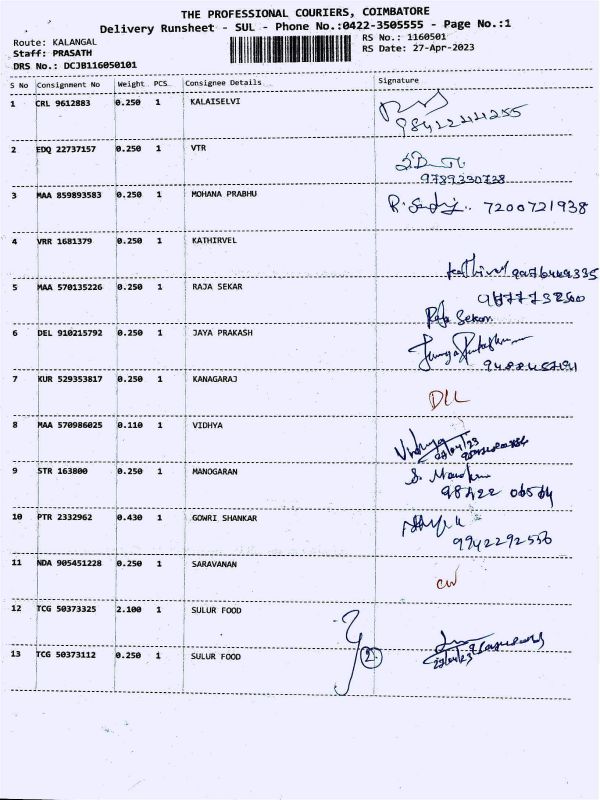 THE PROFESSIONAL COURIERS, COIMBATORE
Delivery Runsheet - SUL - Phone No.:0422-3505555 - Page No.:1
Route: KALANGAL
RS No.: 1160501
Staff: PRASATH
RS Date: 27-Apr-2023
DRS No.: DCJB116050101
S No Consignment No Weight PCS Consignee Details Signature
1 CRL 9612883 0.250 1 KALAISELVI
2 EDQ 22737157 0.250 1 VTR
9789330738
3 MAA 859893583 0.250 1 MOHANA PRABHU
7200721938
4 VRR 1681379 0.250 1 KATHIRVEL
5 MAA 570135226 0.250 1 RAJA SEKAR
Raja Sekar
6 DEL 910215792 0.250 1 JAYA PRAKASH
7 KUR 529353817 0.250 1 KANAGARAJ
DLL
8 MAA 570986025 0.110 1 VIDHYA
Vidhya
9 STR 163800 0.250 1 MANOGARAN
10 PTR 2332962 0.430 1 GOWRI SHANKAR
9942292556
11 NDA 905451228 0.250 1 SARAVANAN
12 TCG 50373325 2.100 1 SULUR FOOD
13 TCG 50373112 0.250 1 SULUR FOOD
2